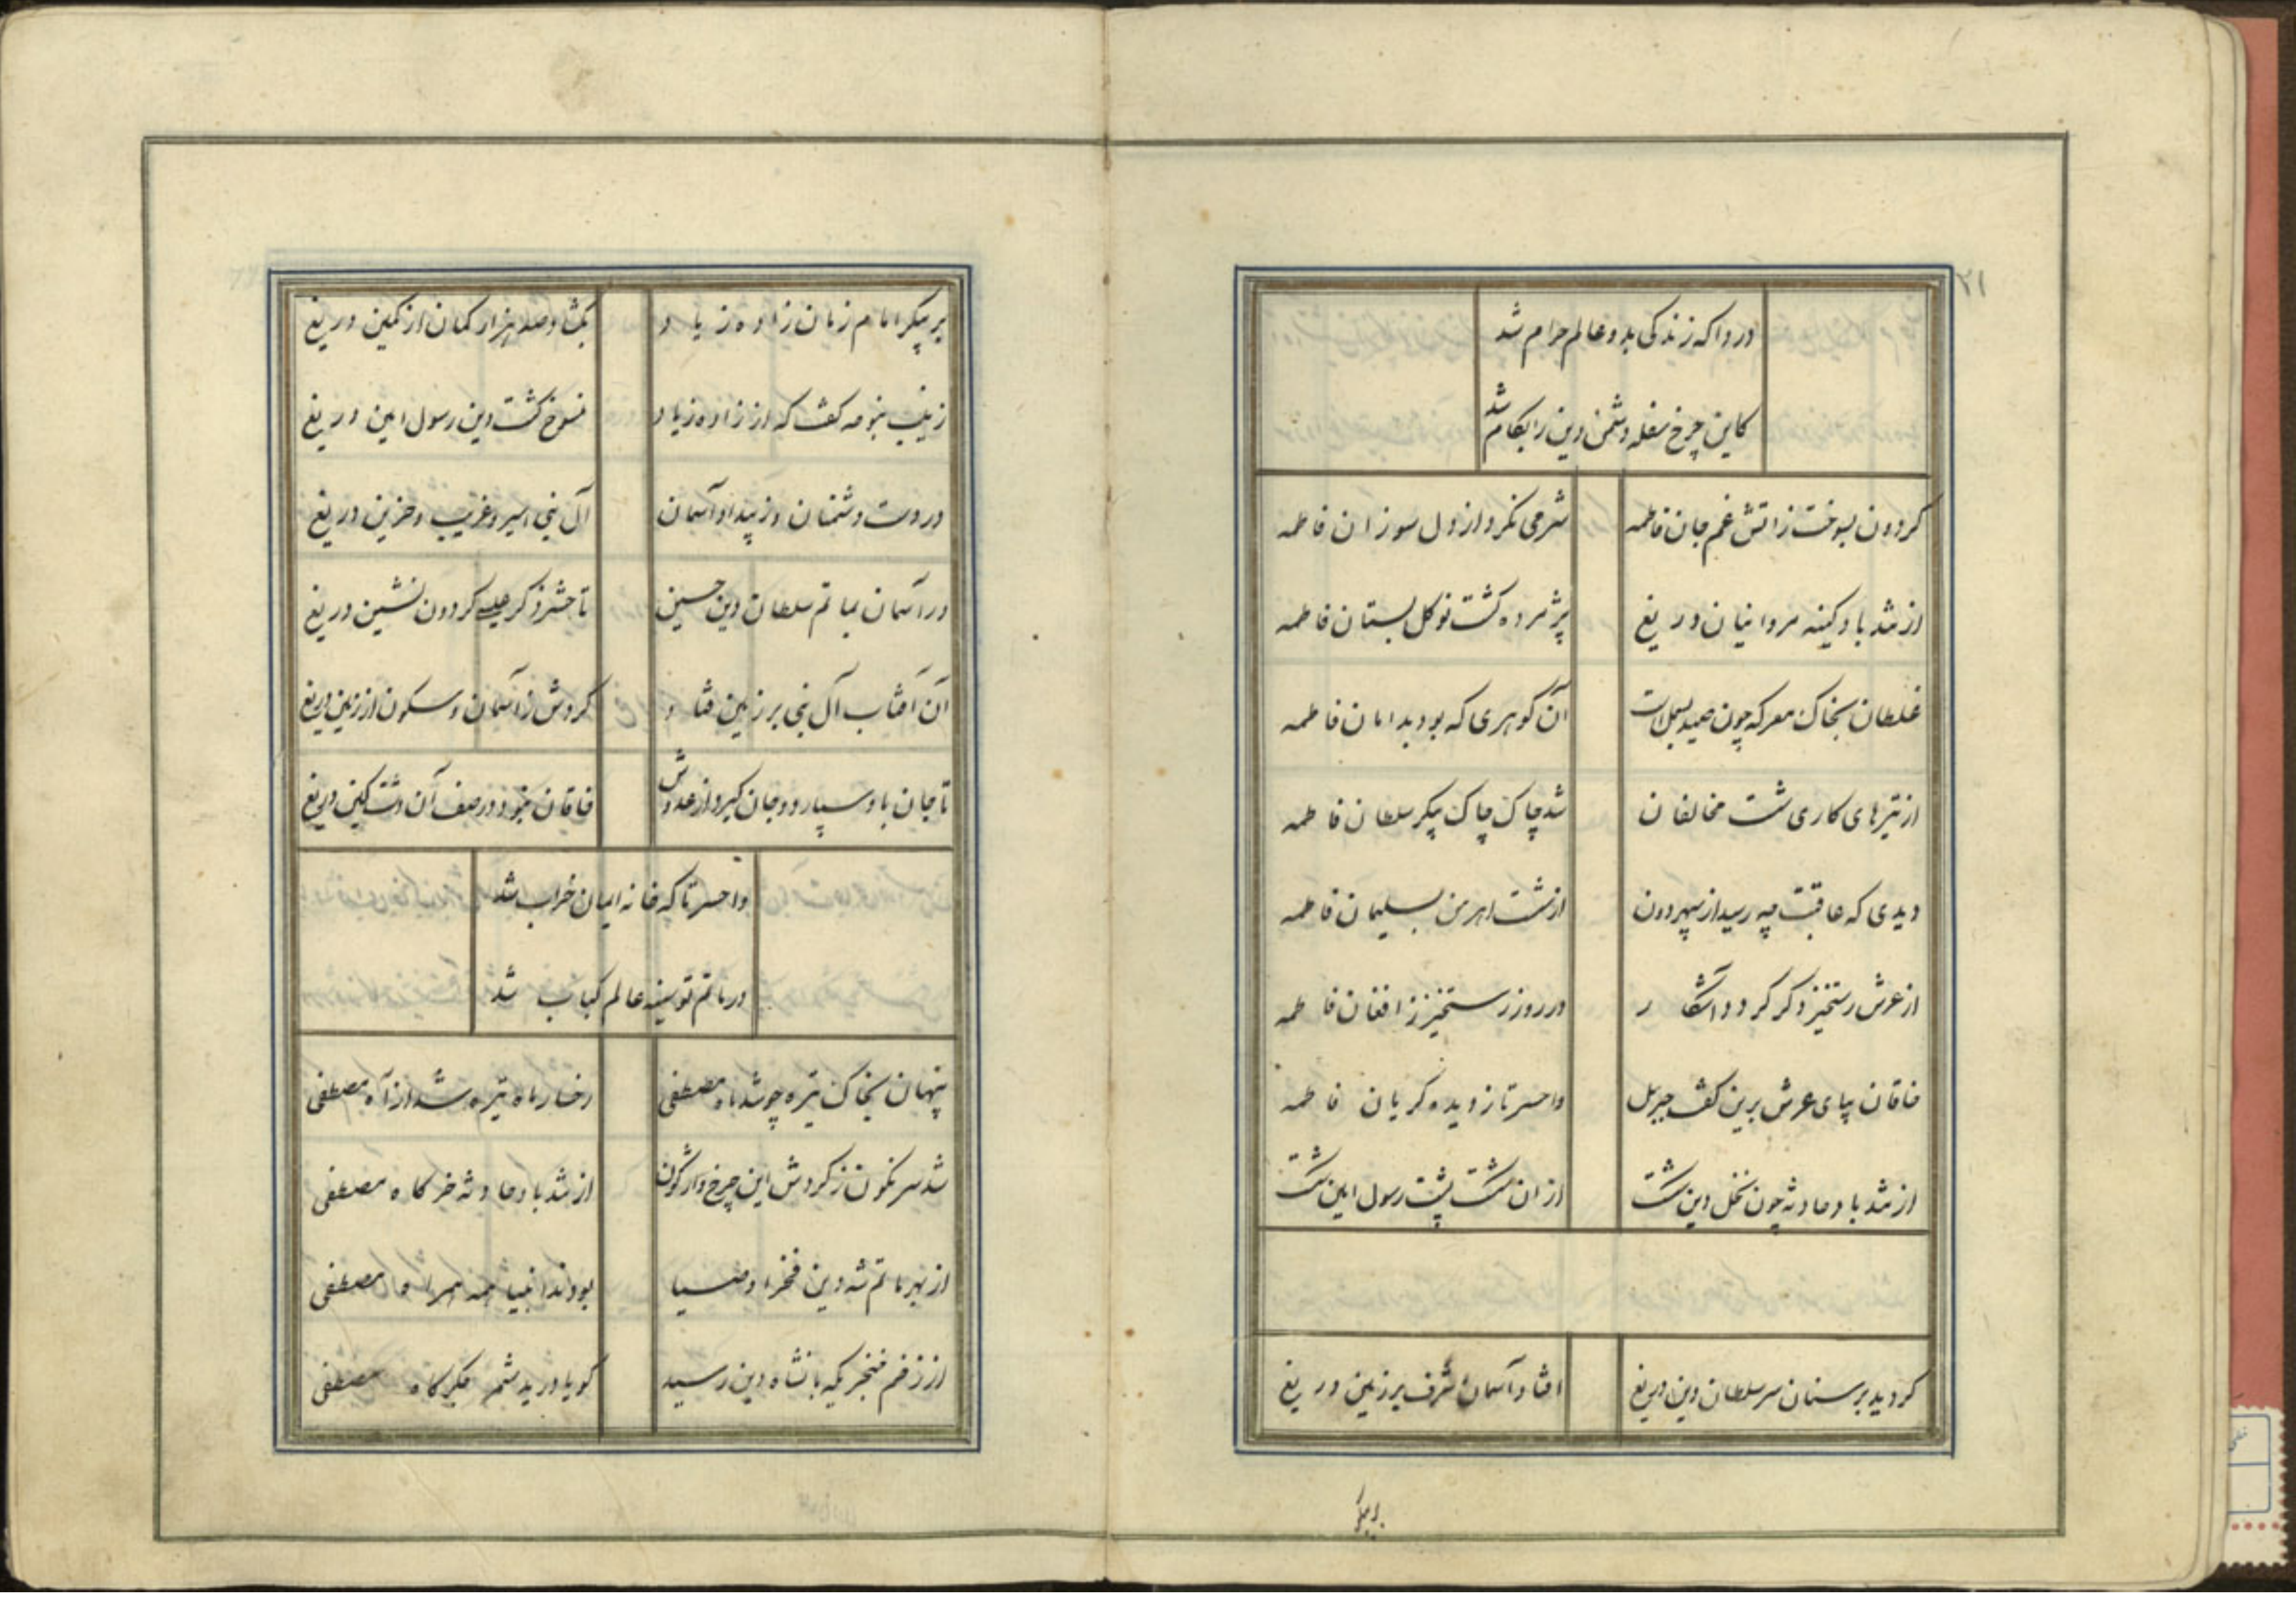 ۲۱
دردا که زندگی بدو عالم حرام شد
کاین چرخ سفله دشمن دین را بکام شد
کردون بسوخت زاتش غم جان فاطمه شرمی نکرد از دل سوزان فاطمه
از تند باد کینه مروانیان دریغ پژمرده کشت نوکل بستان فاطمه
غلطان بخاک معرکه چون صید بسملست آن کوهری که بود بدامان فاطمه
از تیرهای کاری شست مخالفان شد چاک چاک پیکر سلطان فاطمه
دیدی که عاقبت چه رسید از سپهر دون از شست اهرمن بسلیمان فاطمه
از عرش رستخیز دکر کردد آشکار در روز رستخیز ز افغان فاطمه
خاقان بپای عرش برین کفت جبرئیل واحسرتا ز دیده کریان فاطمه
از تند باد حادثه چون نخل دین شکست از ان شکست پشت رسول امین شکست
کردید بر سنان سر سلطان دین دریغ افتاد آسمان شرف بر زمین دریغ
بر پیکر
بر پیکر امام زمان زاده زیاد بکشاد صد هزار کمان از کمین دریغ
زینب بنوحه کفت که از زاده زیاد منسوخ کشت دین رسول امین دریغ
در دست دشمنان وز بیداد آسمان آل نبی اسیر و غریب و حزین دریغ
در آسمان بماتم سلطان دین حسین تا حشر ذکر عیسی کردون نشین دریغ
آن آفتاب آل نبی بر زمین فتاد کردش ز آسمان و سکون از زمین دریغ
تا جان باو سپارد و جان کیرد از عدوش خاقان نبود در صف آن دشت کین دریغ
واحسرتا که خانه ایمان خراب شد
در ماتم تو سینه عالم کباب شد
پنهان بخاک تیره چو شد ماه مصطفی رخسار ماه تیره شد از آه مصطفی
شد سرنکون ز کردش این چرخ واژکون از تند باد حادثه خرکاه مصطفی
از بهر ماتم شه دین فخر اوصیا بودند انبیا همه همراه مصطفی
از زخم خنجریکه بانشاه دین رسید کویا درید شمر جکرکاه مصطفی